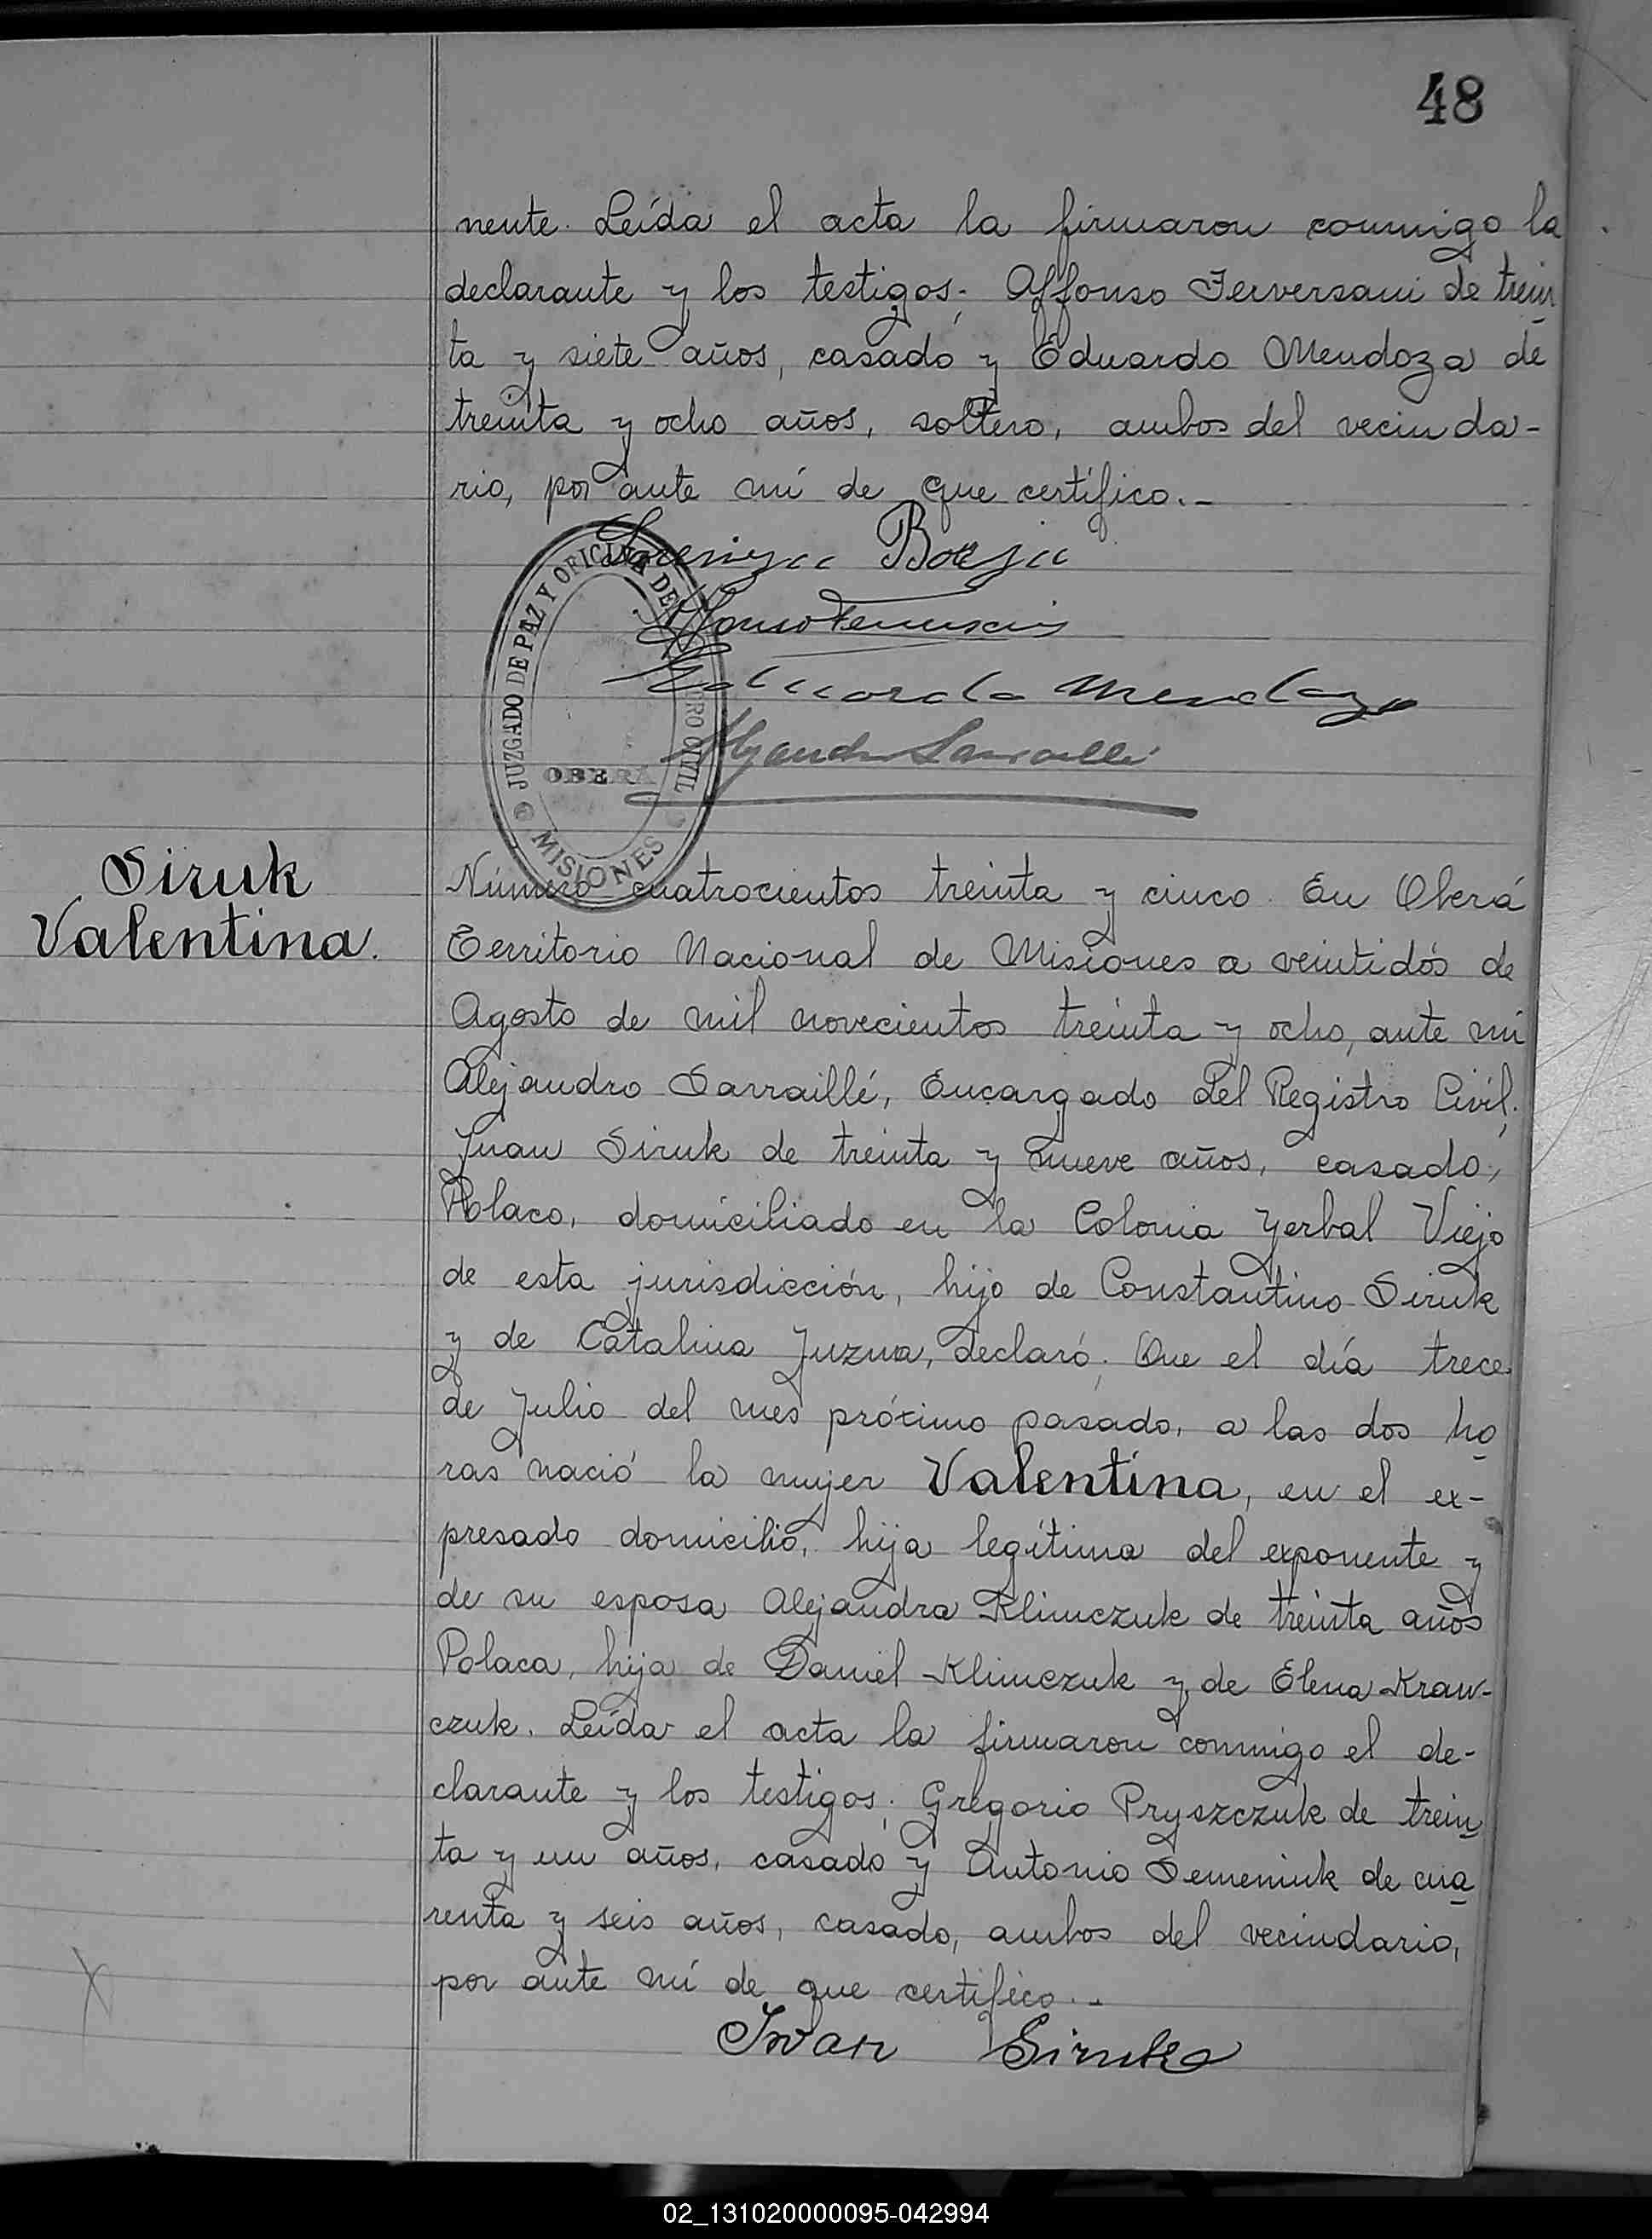 48
nente. Leída el acta la firmaron conmigo la
declarante y los testigos; Affonso Ferversani de trein
ta y siete años, casado y Eduardo Mendoza de
treinta y ocho años, soltero, ambos del vecinda-
rio, por ante mí de que certífico.-
Borja
Eduardo Mendoza
JUZGADO DE PAZ Y OFICINA DE REGISTRO CIVIL
OBERA
MISIONES
Siruk
Valentina.
Número cuatrocientos treinta y cinco. En Oberá
Territorio Nacional de Misiones a veintidós de
Agosto de mil novecientos treinta y ocho, ante mí
Alejandro Sarraillé, Encargado del Registro Civil;
Juan Siruk de treinta y nueve años, casado,
Polaco, domiciliado en la Colonia Yerbal Viejo
de esta jurisdicción, hijo de Constantino Siruk
y de Catalina Juzwa, declaró; Que el día trece
de Julio del mes próximo pasado, a las dos ho
ras nació la mujer Valentina, en el ex-
presado domicilio, hija legítima del exponente y
de su esposa Alejandra Klimczuk de treinta años
Polaca, hija de Daniel Klimczuk y de Elena Kraw-
czuk. Leída el acta la firmaron conmigo el de-
clarante y los testigos; Gregorio Pryszczuk de trein
ta y un años, casado y Antonio Semeniuk de cua
renta y seis años, casado, ambos del vecindario,
por ante mí de que certifico.-
Iwan Siruk
02_131020000095-042994